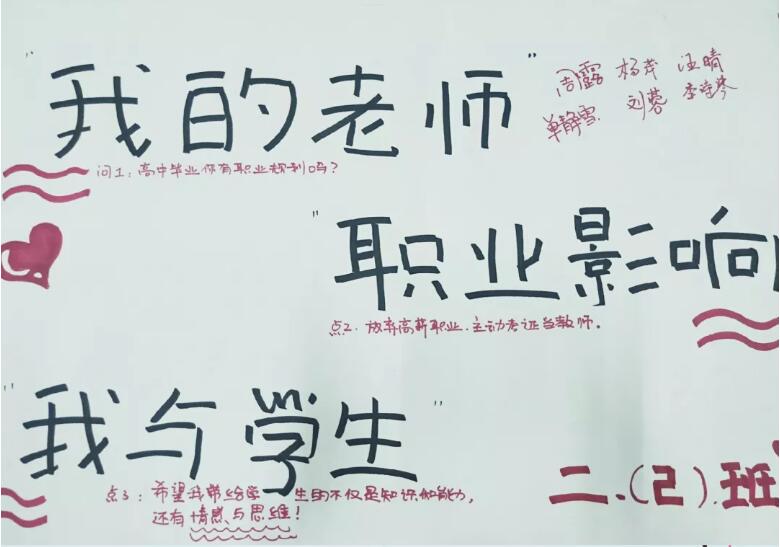 "我的老师"
周露 杨芹 汪晴
单静雪 刘蓉
问1：高中毕业你有职业规划吗？
"职业影响
点2. 放弃高薪职业.主动考证当教师。
"我与学生"
点3：希望我带给学生的不仅是知识和能力，
还有情感与思维！
二.(2).班